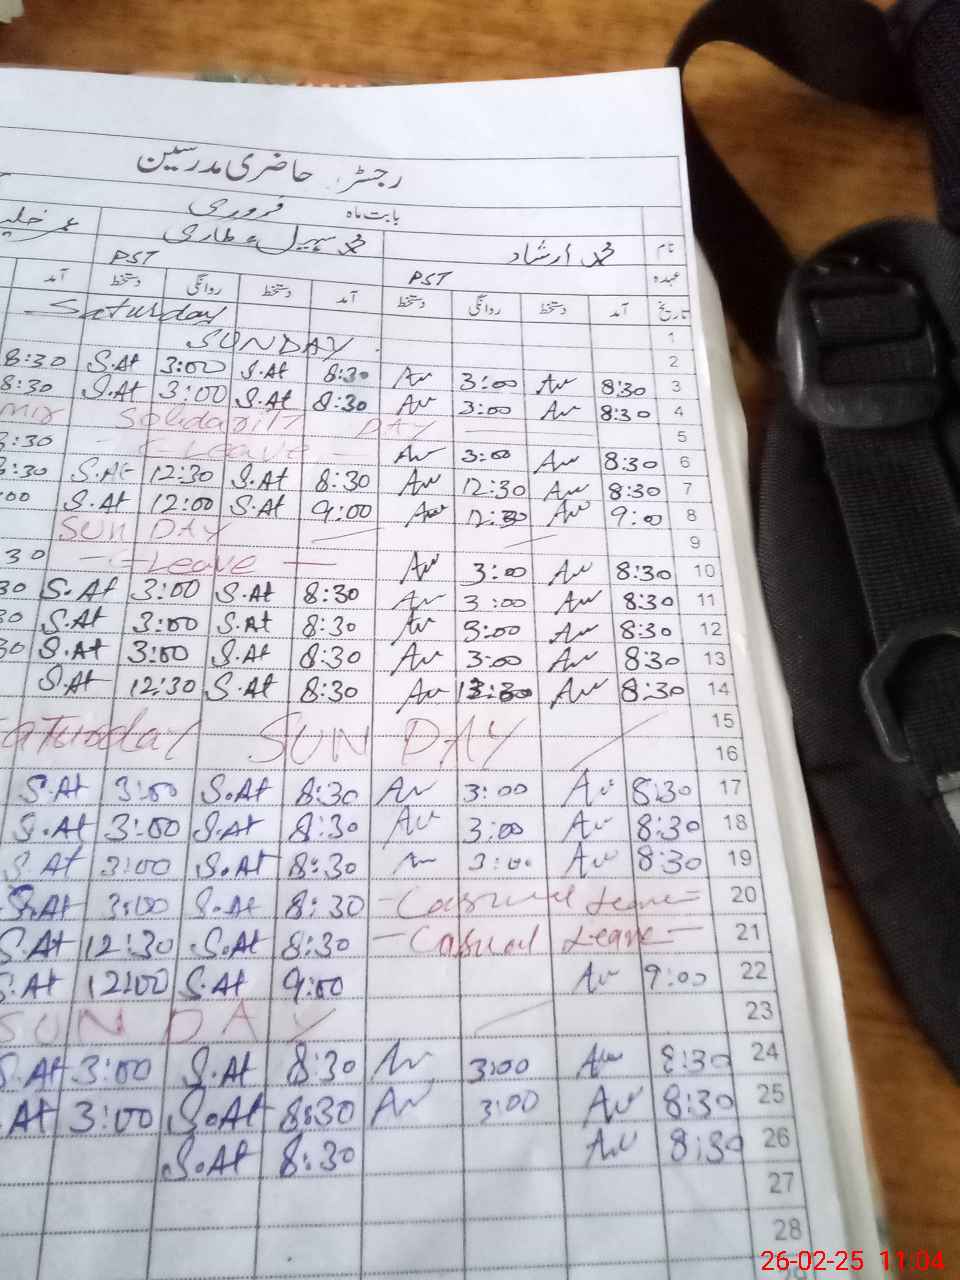 رجسٹر حاضری مدرسین
بابت ماہ فروری
نام محمد ارشاد محمد سہیل عطاری عمر
عہدہ PST PST
تاریخ آمد دستخط روانگی دستخط آمد دستخط روانگی دستخط آمد
1 Saturday
2 SUNDAY
8:30 S.At 3:00 S.At 8:30 Au 3:00 Au 8:30 3
8:30 S.At 3:00 S.At 8:30 Au 3:00 Au 8:30 4
Solidarity DAY 5
8:30 - Leave - Au 3:00 Au 8:30 6
8:30 S.At 12:30 S.At 8:30 Au 12:30 Au 8:30 7
:00 S.At 12:00 S.At 9:00 Au Au 9:00 8
SUN DAY 9
30 - Leave - Au 3:00 Au 8:30 10
30 S.At 3:00 S.At 8:30 Au 3:00 Au 8:30 11
30 S.At 3:00 S.At 8:30 Au 3:00 Au 8:30 12
30 S.At 3:00 S.At 8:30 Au 3:00 Au 8:30 13
S.At 12:30 S.At 8:30 Au Au 8:30 14
15
aturday SUN DAY 16
S.At 3:00 S.At 8:30 Au 3:00 Au 8:30 17
S.At 3:00 S.At 8:30 Au 3:00 Au 8:30 18
S.At 3:00 S.At 8:30 Au 3:00 Au 8:30 19
S.At 3:00 S.At 8:30 - Casual Leave - 20
S.At 12:30 S.At 8:30 - Casual Leave - 21
S.At 12:00 S.At 9:00 Au 9:00 22
SUN DAY 23
S.At 3:00 S.At 8:30 Au 3:00 Au 8:30 24
At 3:00 S.At 8:30 Au 3:00 Au 8:30 25
S.At 8:30 Au 8:30 26
27
28
26-02-25 11:04